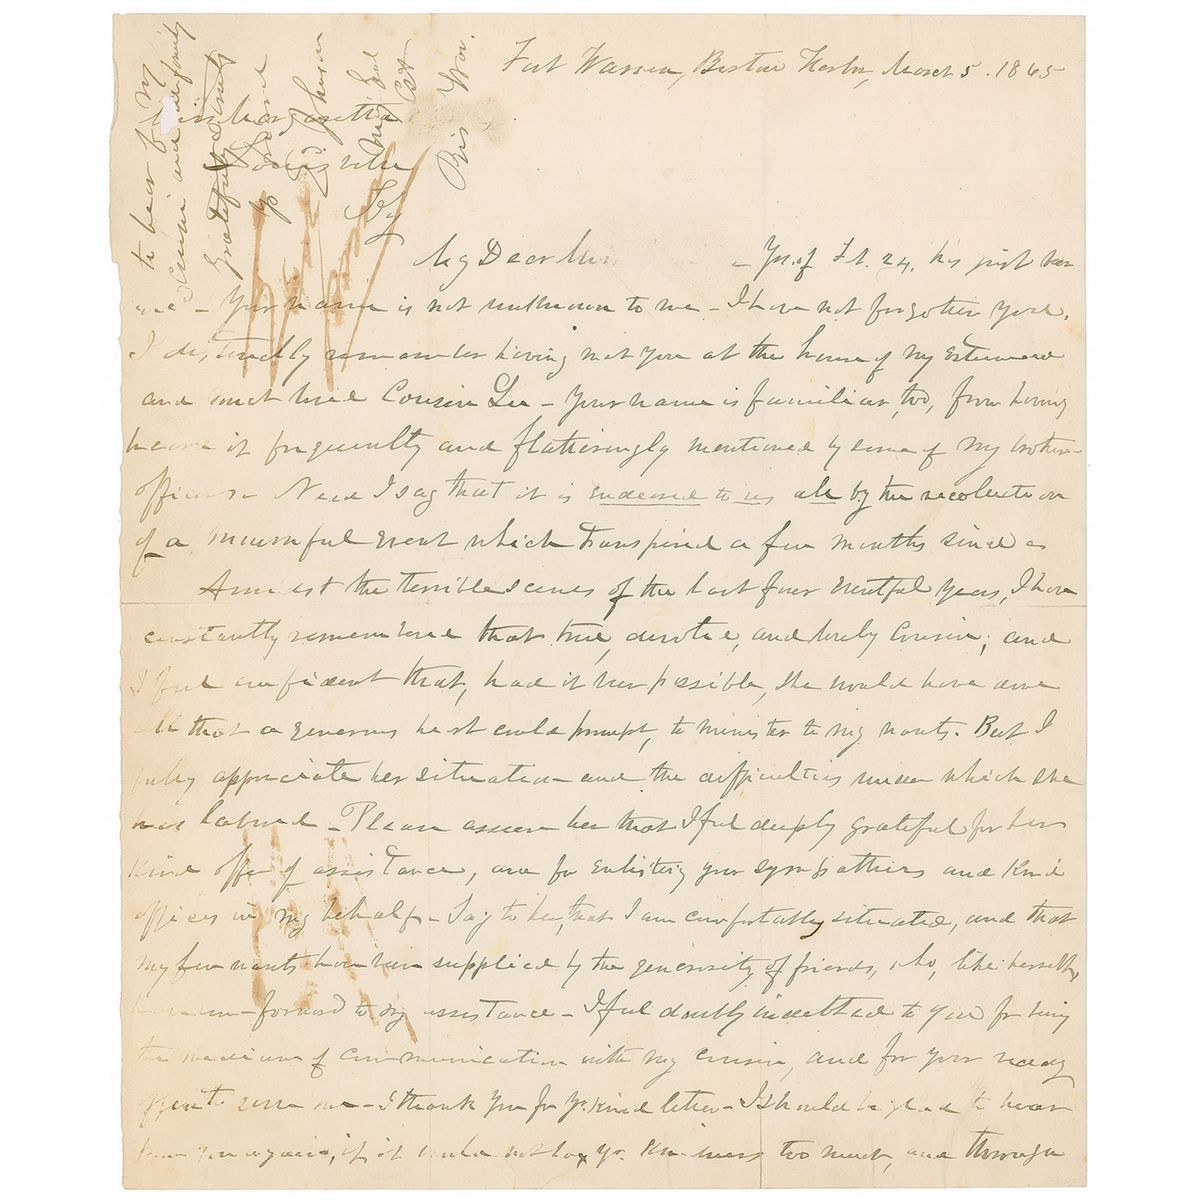 Fort Warren, Boston Harbor, March 5. 1865
Miss Margaretta
Louisville
Ky
My Dear Miss - Yr. of Fb. 24, has just
me - Your name is not unknown to me - I have not forgotten you.
I distinctly remember having met you at the house of my esteemed
and much loved Cousin Lu - Your name is familiar, too, from having
heard it frequently and flatteringly mentioned by some of my brother
officers - Need I say that it is endeared to us all by the recollection
of a mournful event which transpired a few months since
Amidst the terrible scenes of the last four eventful years, I have
constantly remembered that true, devoted, and lovely Cousin; and
I feel confident that, had it been possible, she would have done
all that a generous heart could prompt, to minister to my wants. But I
fully appreciate her situation and the difficulties under which she
has labored - Please assure her that I feel deeply grateful for her
kind offer of assistance, and for enlisting your sympathies and kind
offices in my behalf - Say to her, that I am comfortably situated, and that
my few wants have been supplied by the generosity of friends, who, like herself,
have come forward to my assistance - I feel doubly indebted to you for being
the medium of communication with my cousin, and for your ready
offer to serve me - I thank you for yr. kind letter - I should be glad to hear
from you again, if it would not tax yr. kindness too much, and through
to hear of my
Cousin and her family
Gratefully
Johnson
Maj Gen
CSA
Pris War.